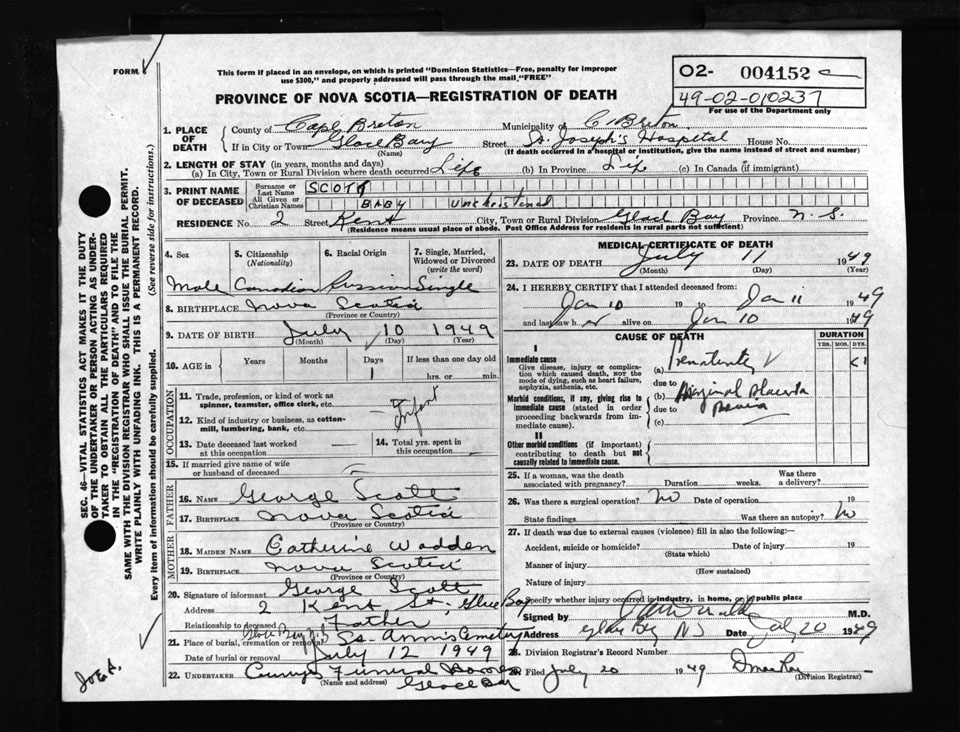 FORM
This form if placed in an envelope, on which is printed "Dominion Statistics—Free, penalty for improper
use $300," and properly addressed will pass through the mail, "FREE"
PROVINCE OF NOVA SCOTIA—REGISTRATION OF DEATH
02- 004152
49-02-010237
For use of the Department only
1. PLACE OF DEATH
County of Cape Breton Municipality of C. Breton
If in City or Town Glace Bay (Name) Street St Joseph's Hospital House No.
(If death occurred in a hospital or institution, give the name instead of street and number)
2. LENGTH OF STAY (in years, months and days)
(a) In City, Town or Rural Division where death occurred Life (b) In Province Life (c) In Canada (if immigrant)
3. PRINT NAME OF DECEASED
Surname or Last Name SCOTT
All Given or Christian Names BABY Unchristened
RESIDENCE No. 2 Street Kent City, Town or Rural Division Glace Bay Province N. S.
(Residence means usual place of abode. Post Office Address for residents in rural parts not sufficient)
4. Sex 5. Citizenship (Nationality) 6. Racial Origin 7. Single, Married, Widowed or Divorced (write the word)
Male Canadian Russian Single
8. BIRTHPLACE Nova Scotia
(Province or Country)
9. DATE OF BIRTH July 10 1949
(Month) (Day) (Year)
10. AGE in Years Months Days If less than one day old
1 hrs. or min.
OCCUPATION
11. Trade, profession, or kind of work as spinner, teamster, office clerk, etc. Infant
12. Kind of industry or business, as cotton-mill, lumbering, bank, etc.
13. Date deceased last worked at this occupation
14. Total yrs. spent in this occupation
15. If married give name of wife or husband of deceased
FATHER
16. NAME George Scott
17. BIRTHPLACE Nova Scotia
(Province or Country)
MOTHER
18. MAIDEN NAME Catherine Wadden
19. BIRTHPLACE Nova Scotia
(Province or Country)
20. Signature of informant George Scott
Address 2 Kent St. Glace Bay
Relationship to deceased Father
21. Place of burial, cremation or removal Glace Bay St. Ann's Cemetery
Date of burial or removal July 12 1949
22. UNDERTAKER Curry's Funeral Home
(Name and address) Glace Bay
MEDICAL CERTIFICATE OF DEATH
23. DATE OF DEATH July 11 1949
(Month) (Day) (Year)
24. I HEREBY CERTIFY that I attended deceased from:
Jan 10 19 to Jan 11 1949
and last saw h alive on Jan 10 1949
CAUSE OF DEATH DURATION
YRS. MOS. DYS.
I
Immediate cause
Give disease, injury or complication which caused death, not the mode of dying, such as heart failure, asphyxia, asthenia, etc.
(a) Prematurity <1
due to
Morbid conditions, if any, giving rise to immediate cause (stated in order proceeding backwards from immediate cause).
(b) Marginal Placenta
due to Previa
(c)
II
Other morbid conditions (if important) contributing to death but not causally related to immediate cause.
25. If a woman, was the death associated with pregnancy? Duration weeks. Was there a delivery?
26. Was there a surgical operation? No Date of operation 19
State findings Was there an autopsy? No
27. If death was due to external causes (violence) fill in also the following:—
Accident, suicide or homicide? Date of injury 19
(State which)
Manner of injury
(How sustained)
Nature of injury
Specify whether injury occurred in industry, in home, or in public place
Signed by M.D.
Address Glace Bay NS Date July 20 1949
28. Division Registrar's Record Number
29. Filed July 20 1949 D MacRae
(Division Registrar)
SEC. 46—VITAL STATISTICS ACT MAKES IT THE DUTY
OF THE UNDERTAKER OR PERSON ACTING AS UNDER-
TAKER TO OBTAIN ALL THE PARTICULARS REQUIRED
IN THE "REGISTRATION OF DEATH" AND TO FILE THE
SAME WITH THE DIVISION REGISTRAR WHO SHALL ISSUE THE BURIAL PERMIT.
WRITE PLAINLY WITH UNFADING INK. THIS IS A PERMANENT RECORD.
Every item of information should be carefully supplied. (See reverse side for instructions.)